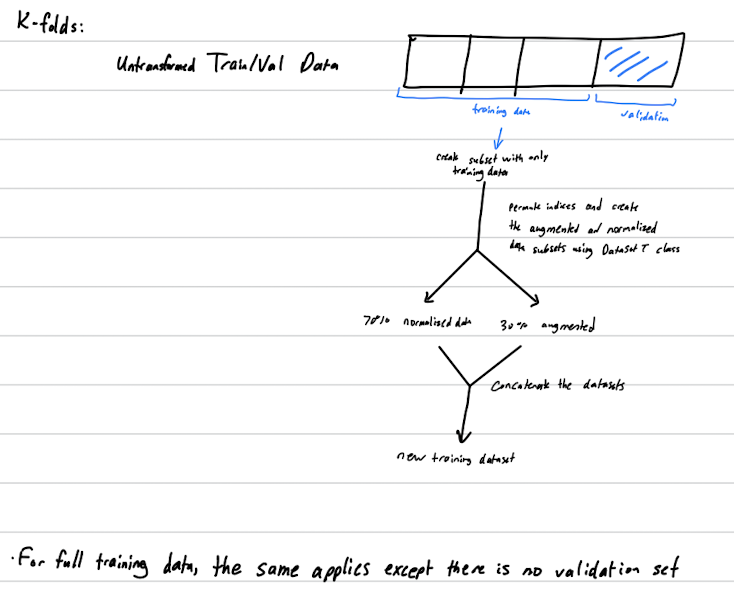 K-folds:
Untransformed Train/Val Data
training data
validation
create subset with only
training data
Permute indices and create
the augmented and normalized
data subsets using Dataset T class
70% normalized data
30% augmented
Concatenate the datasets
new training dataset
• For full training data, the same applies except there is no validation set